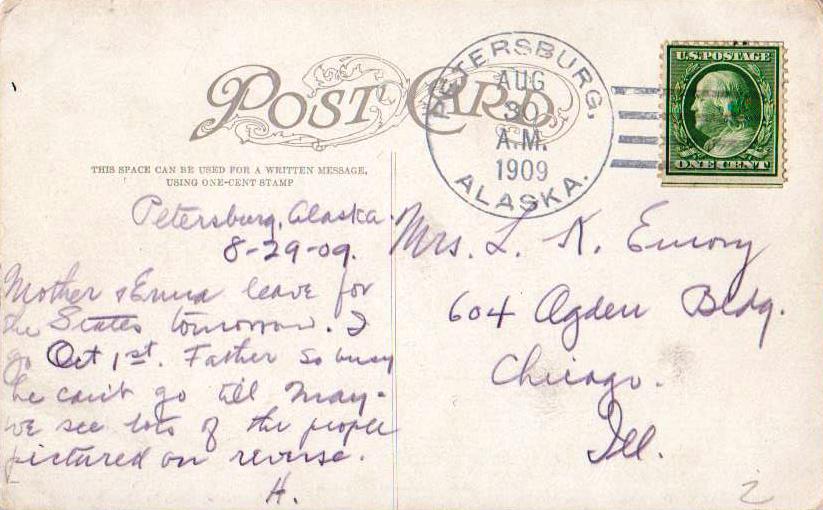 POST CARD
THIS SPACE CAN BE USED FOR A WRITTEN MESSAGE,
USING ONE-CENT STAMP
PETERSBURG,
AUG
30
A.M.
1909
ALASKA.
U.S. POSTAGE
ONE CENT
Petersburg, Alaska.
8-29-09.
Mother & Erma leave for
the States tomorrow. I
go Oct 1st. Father so busy
he can't go till May.
we see lots of the people
pictured on reverse.
H.
Mrs. L. K. Emory
604 Ogden Bldg.
Chicago.
Ill.
2